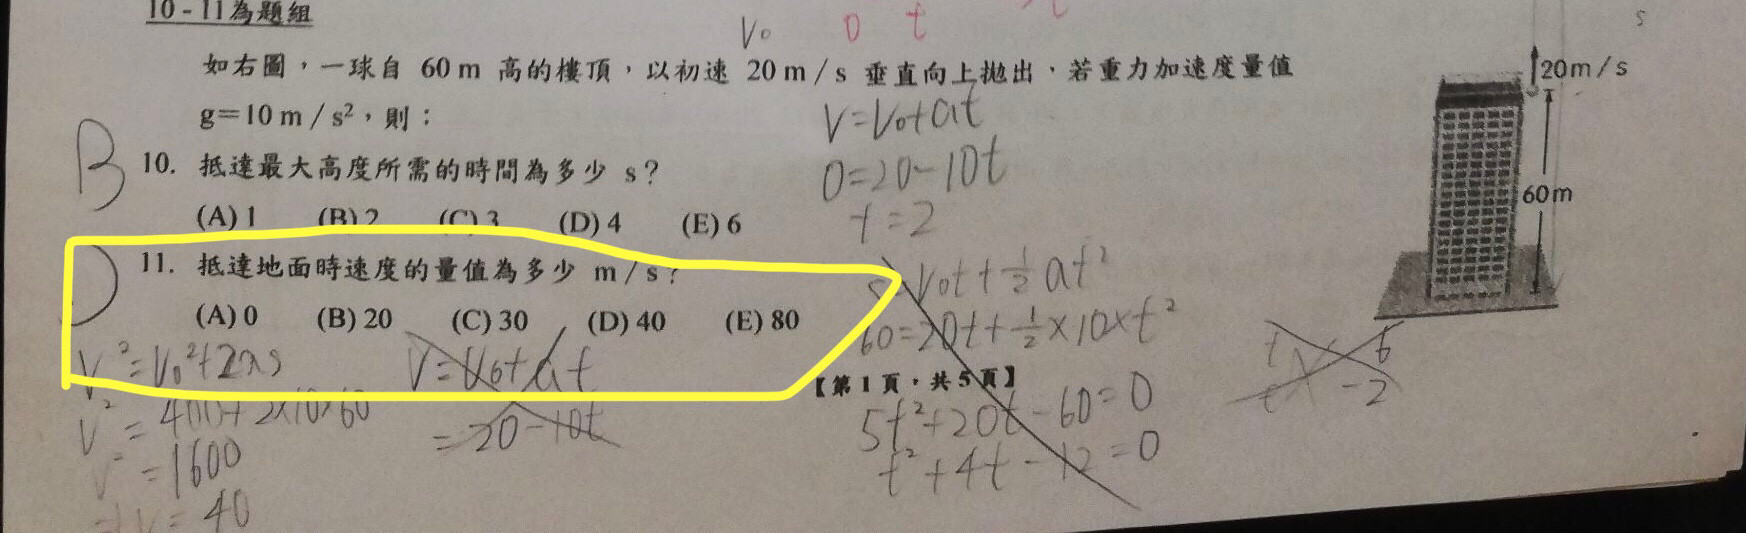 10-11為題組
V₀ 0 t
s
如右圖，一球自 60 m 高的樓頂，以初速 20 m / s 垂直向上拋出，若重力加速度量值
g=10 m / s²，則：
20m/s
60m
V=V₀+at
0=20-10t
t=2
B
10. 抵達最大高度所需的時間為多少 s？
(A) 1 (B) 2 (C) 3 (D) 4 (E) 6
D
11. 抵達地面時速度的量值為多少 m / s？
(A) 0 (B) 20 (C) 30 (D) 40 (E) 80
S=V₀t+½at²
60=20t+½×10×t²
V²=V₀²+2as
V=V₀+at
【第 1 頁，共 5 頁】
t 6
t -2
V²=400+2×10×60
=20-10t
5t²+20t-60=0
V²=1600
t²+4t-12=0
V=40